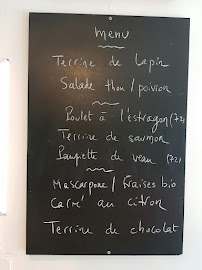 Menu
Terrine de Lapin
Salade thon / poivron
Poulet à l'estragon (72)
Terrine de saumon
Paupiette de veau (72)
Mascarpone / Fraises bio
Carré au citron
Terrine de chocolat